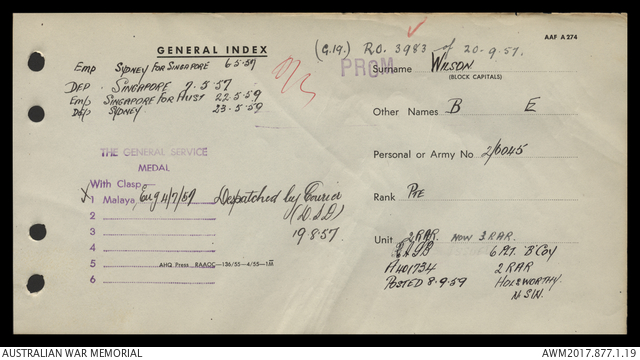 AAF A 274
GENERAL INDEX
(G.19.) R.O. 3983 of 20-9-57.
PROM
Emp SYDNEY FOR SINGAPORE 6-5-57
DEP. SINGAPORE 7.5.57
Emp SINGAPORE FOR AUST 22.5.59
Dep SYDNEY 23.5.59
Surname WILSON
(BLOCK CAPITALS)
Other Names B E
Personal or Army No 2/6045
Rank Pte
Unit 2 RAR. NOW 3 RAR.
6 Pl. 'B' Coy
A401734 2 RAR
POSTED 8-9-59 HOLSWORTHY.
N.S.W.
THE GENERAL SERVICE
MEDAL
With Clasp—
X 1 Malaya, Eng 4/7/57 Despatched by Courier
2
(D.I.D)
3
19.8.57.
4
5
AHQ Press RAAOC—136/55—4/55—1M
6
AUSTRALIAN WAR MEMORIAL
AWM2017.877.1.19